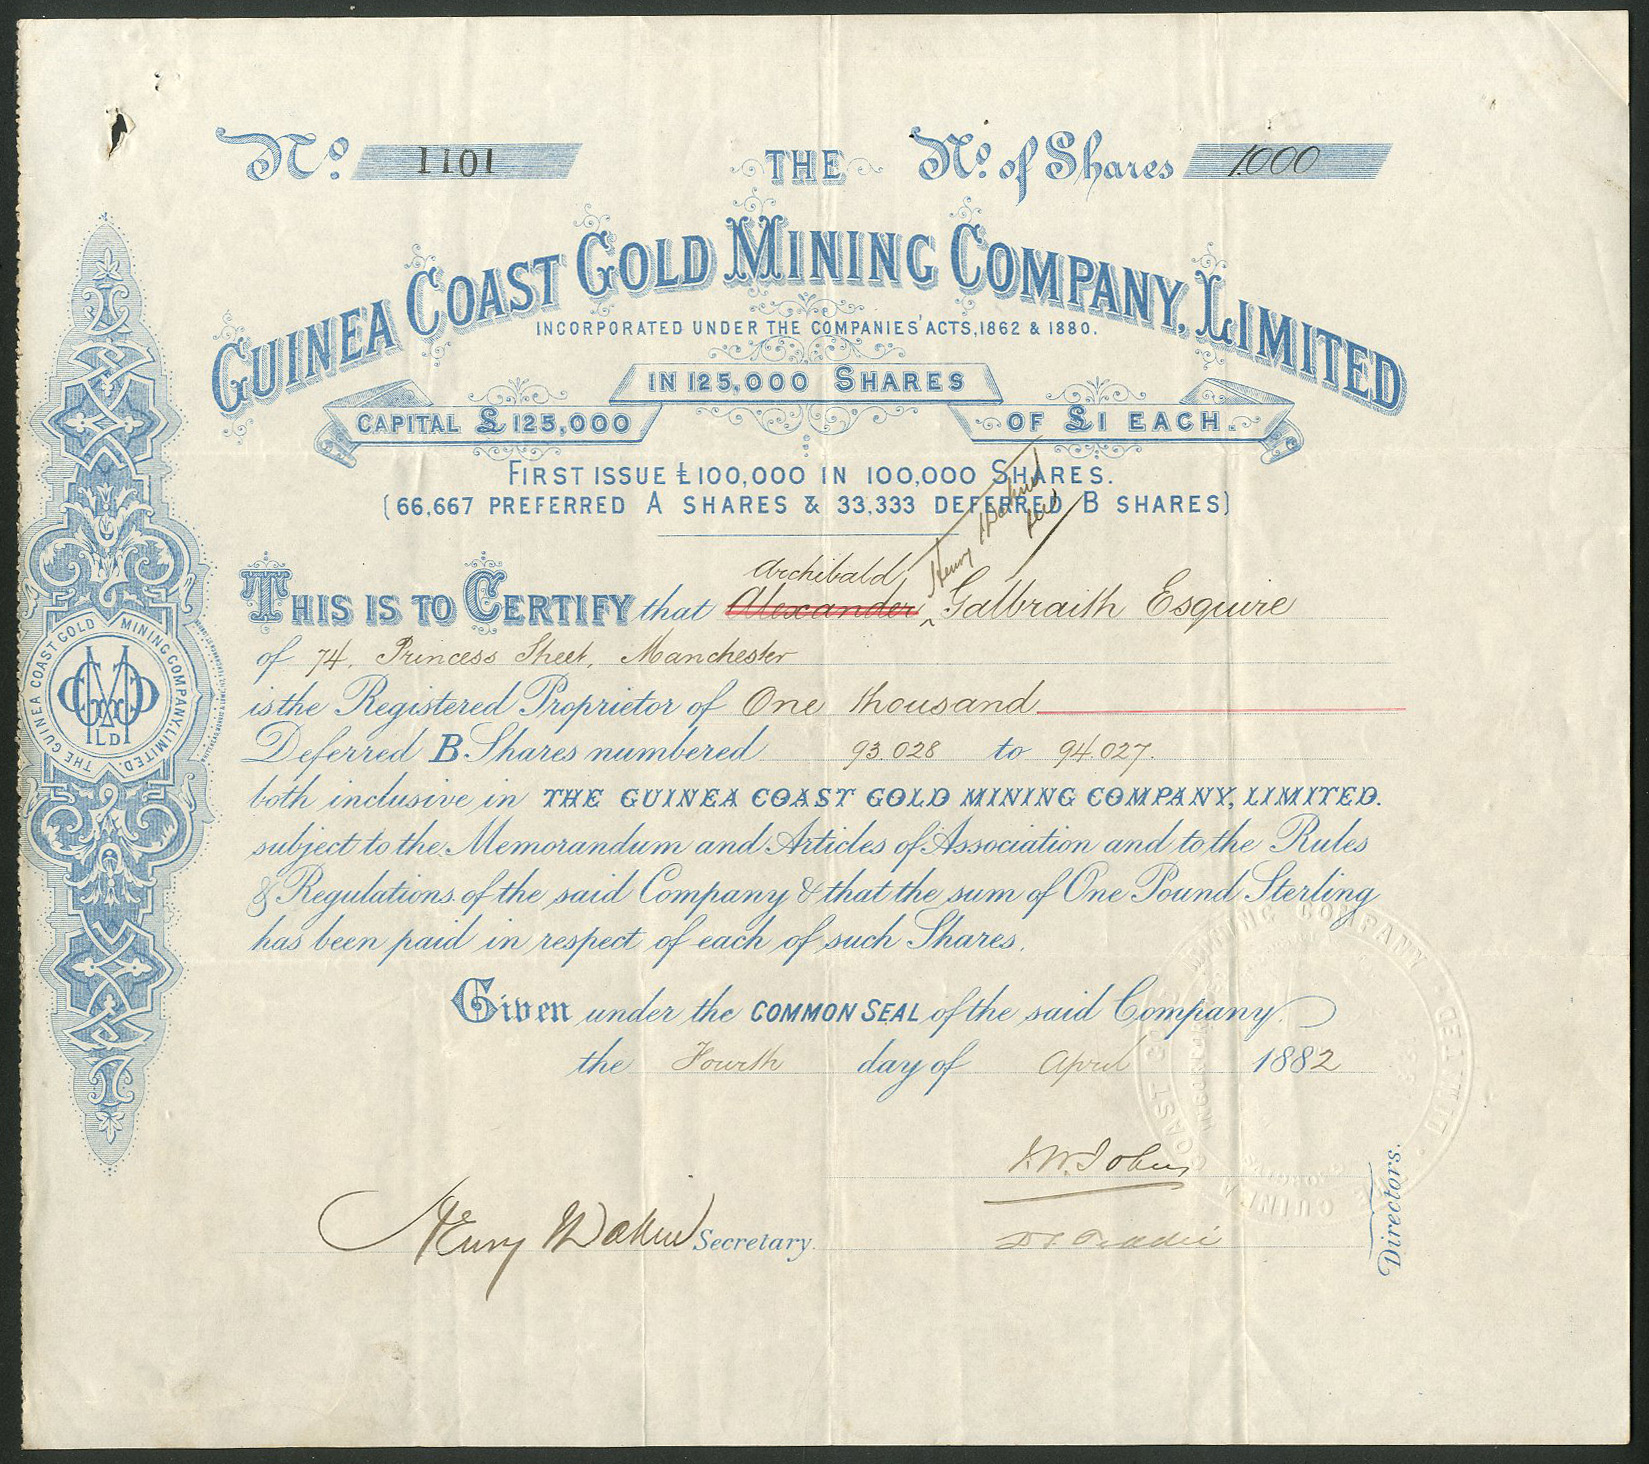 No. 1101
THE
No. of Shares 1000
GUINEA COAST GOLD MINING COMPANY, LIMITED
INCORPORATED UNDER THE COMPANIES' ACTS, 1862 & 1880.
CAPITAL £125,000 IN 125,000 SHARES OF £1 EACH.
FIRST ISSUE £100,000 IN 100,000 SHARES.
(66,667 PREFERRED A SHARES & 33,333 DEFERRED B SHARES)
Archibald
THIS IS TO CERTIFY that Alexander Galbraith Esquire
of 74, Princess Street, Manchester
is the Registered Proprietor of One thousand
Deferred B Shares numbered 93.028 to 94.027.
both inclusive in THE GUINEA COAST GOLD MINING COMPANY, LIMITED.
subject to the Memorandum and Articles of Association and to the Rules
& Regulations of the said Company & that the sum of One Pound Sterling
has been paid in respect of each of such Shares.
Given under the COMMON SEAL of the said Company
the Fourth day of April 1882
Henry Secretary.
Directors.
THE GUINEA COAST GOLD MINING COMPANY, LIMITED.
LD
MINING COMPANY